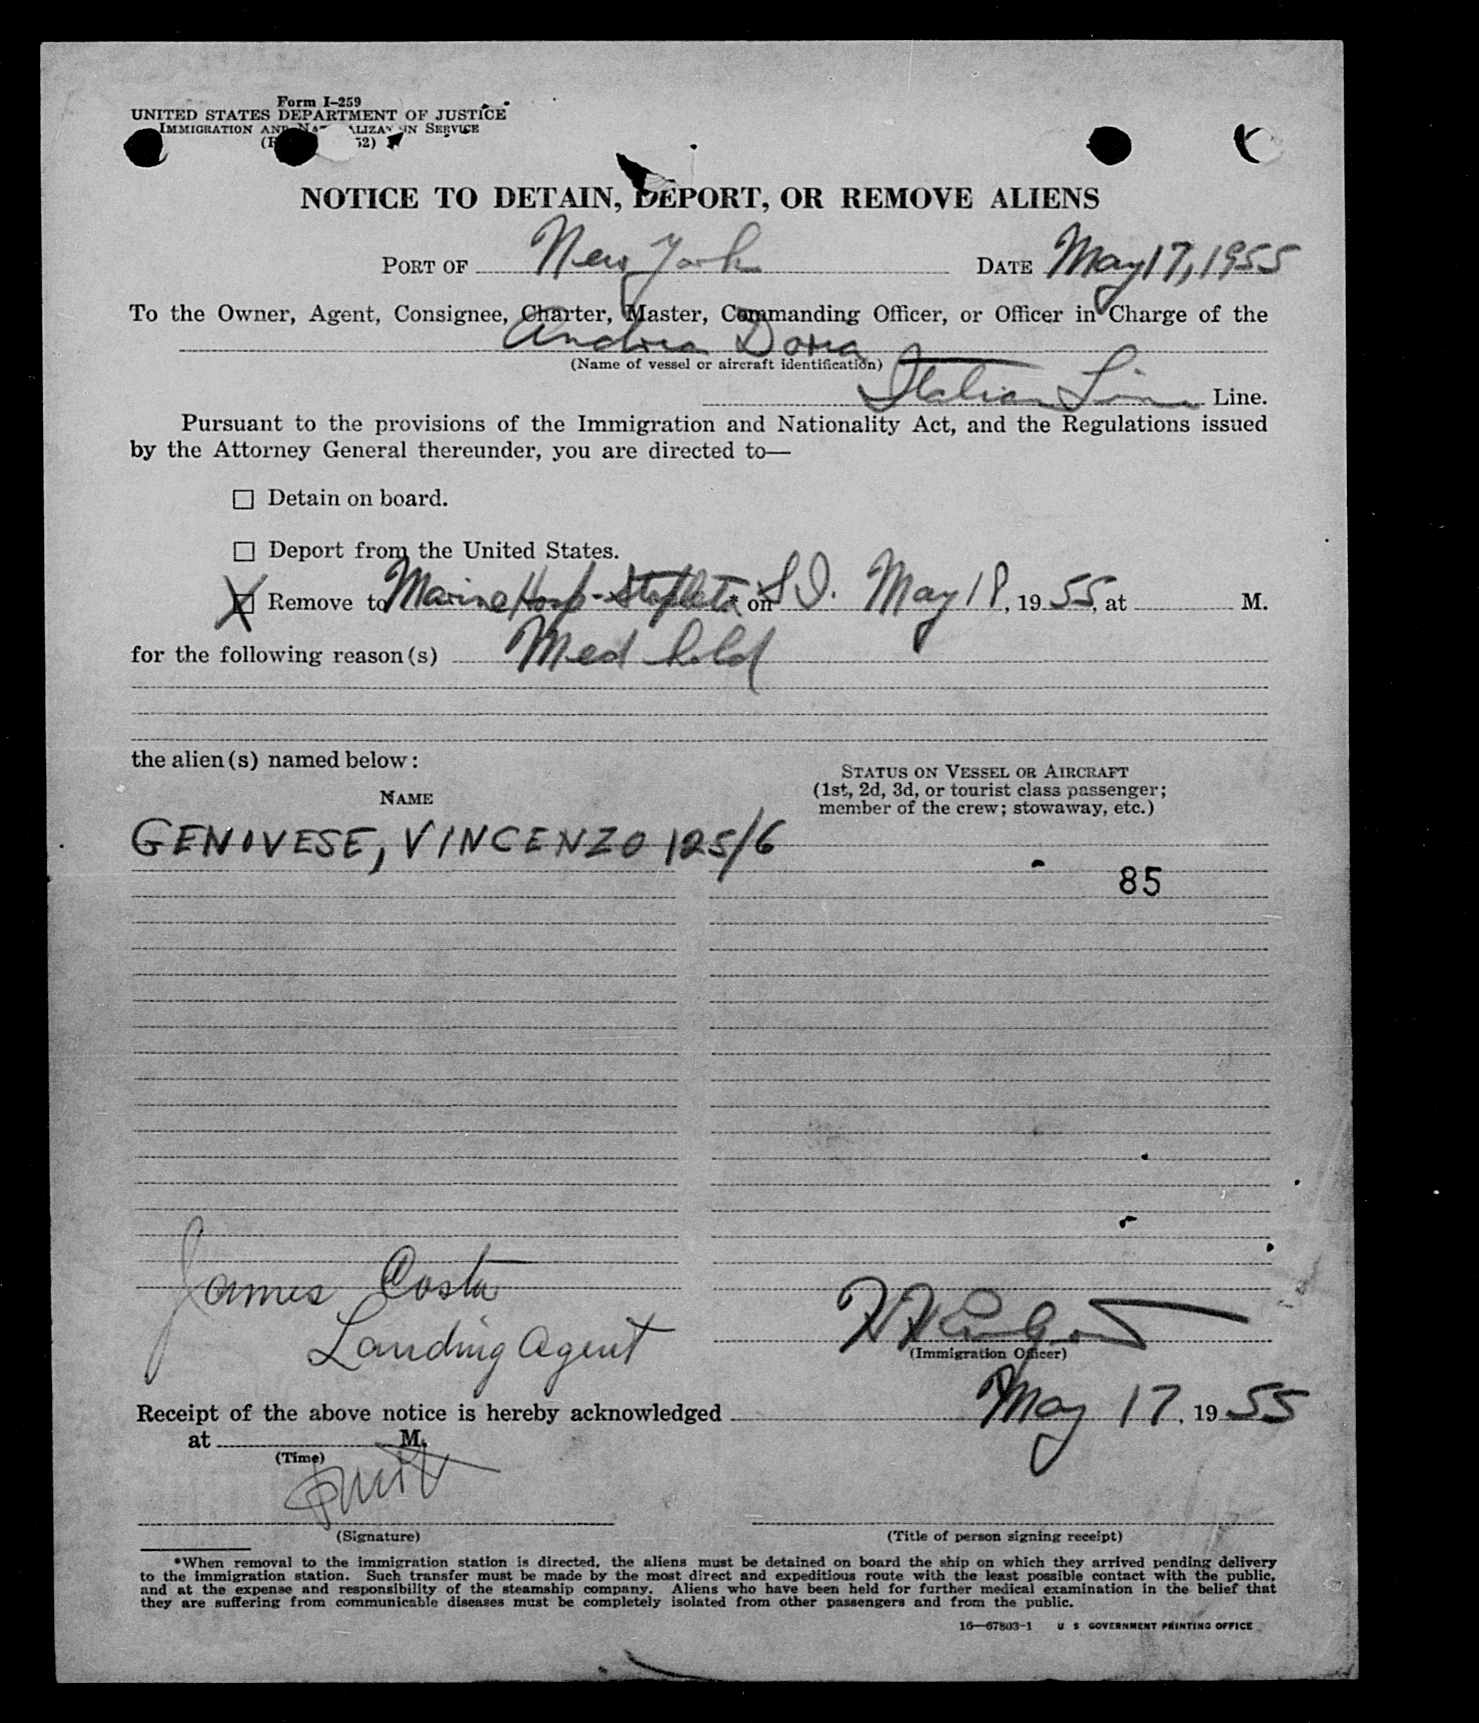 Form I-259
UNITED STATES DEPARTMENT OF JUSTICE
IMMIGRATION AND NATURALIZATION SERVICE
NOTICE TO DETAIN, DEPORT, OR REMOVE ALIENS
PORT OF New York DATE May 17, 1955
To the Owner, Agent, Consignee, Charter, Master, Commanding Officer, or Officer in Charge of the
Andrea Doria
(Name of vessel or aircraft identification)
Italian Line Line.
Pursuant to the provisions of the Immigration and Nationality Act, and the Regulations issued
by the Attorney General thereunder, you are directed to—
☐ Detain on board.
☐ Deport from the United States.
☒ Remove to Marine Hosp - Stapleton * on S.I. May 18, 1955, at M.
for the following reason(s) Med hold
the alien(s) named below:
NAME
STATUS ON VESSEL OR AIRCRAFT
(1st, 2d, 3d, or tourist class passenger;
member of the crew; stowaway, etc.)
GENOVESE, VINCENZO 125/6
85
James Costa
Landing Agent
(Immigration Officer)
Receipt of the above notice is hereby acknowledged May 17, 1955
at M.
(Time)
(Signature) (Title of person signing receipt)
*When removal to the immigration station is directed, the aliens must be detained on board the ship on which they arrived pending delivery
to the immigration station. Such transfer must be made by the most direct and expeditious route with the least possible contact with the public,
and at the expense and responsibility of the steamship company. Aliens who have been held for further medical examination in the belief that
they are suffering from communicable diseases must be completely isolated from other passengers and from the public.
16—67803-1 U S GOVERNMENT PRINTING OFFICE